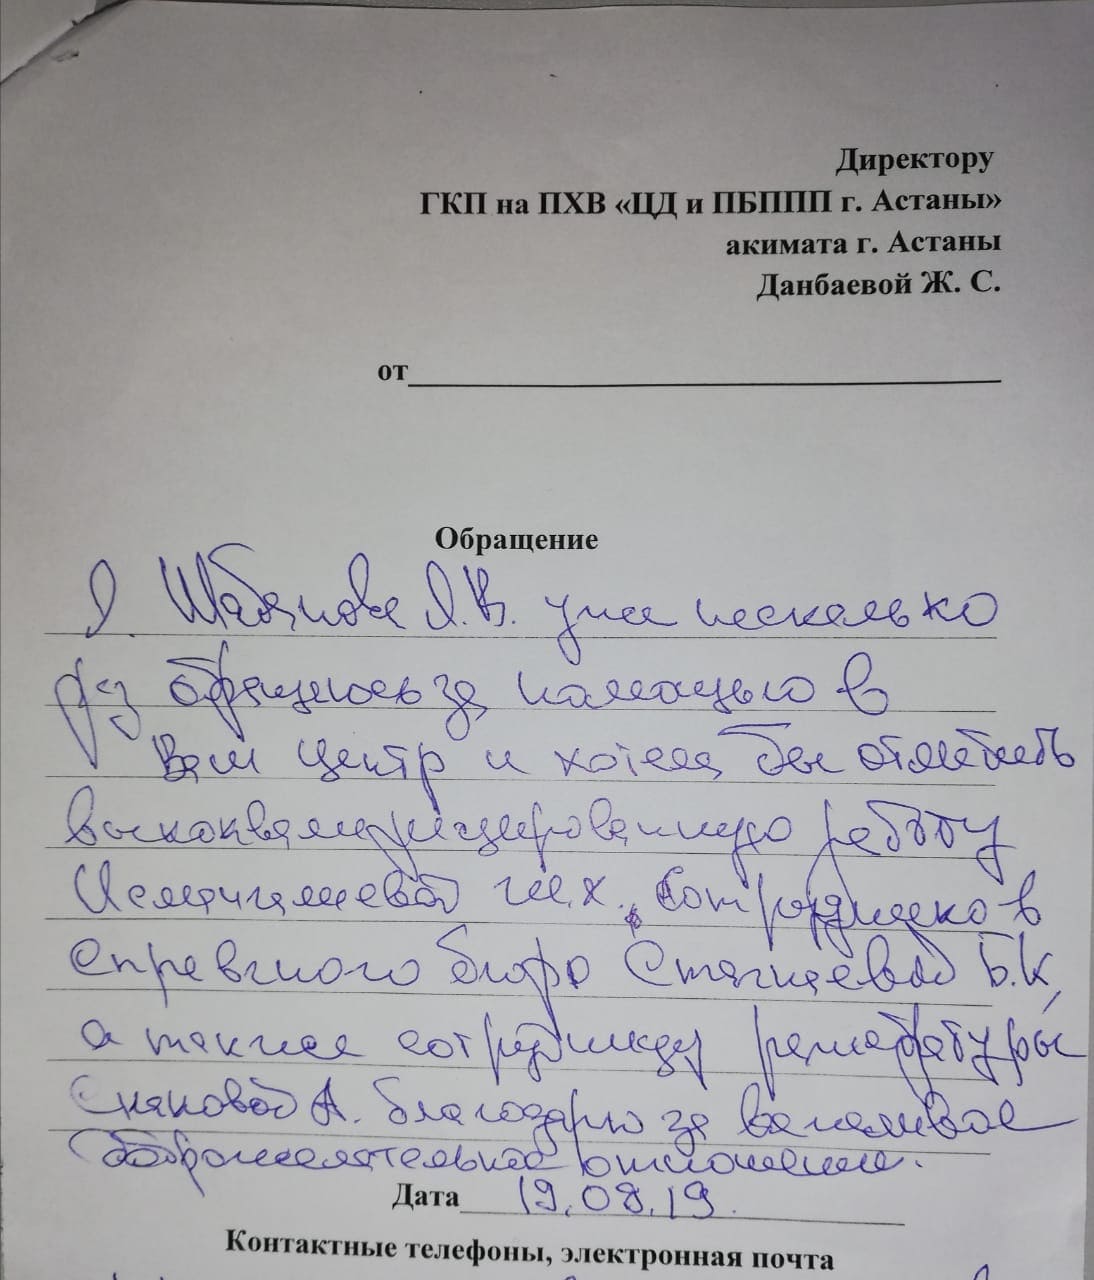 Директору
ГКП на ПХВ «ЦД и ПБППП г. Астаны»
акимата г. Астаны
Данбаевой Ж. С.
от
Обращение
Я. Шабанова Л.В. уже несколько
раз обращаюсь за помощью в
Ваш центр и хотела бы отметить
высококвалифицированную работу
сотрудников
справочного бюро Б.К,
а также сотрудницу регистратуры
А. благодарю за вежливое
доброжелательное отношение.
Дата 19.08.19.
Контактные телефоны, электронная почта